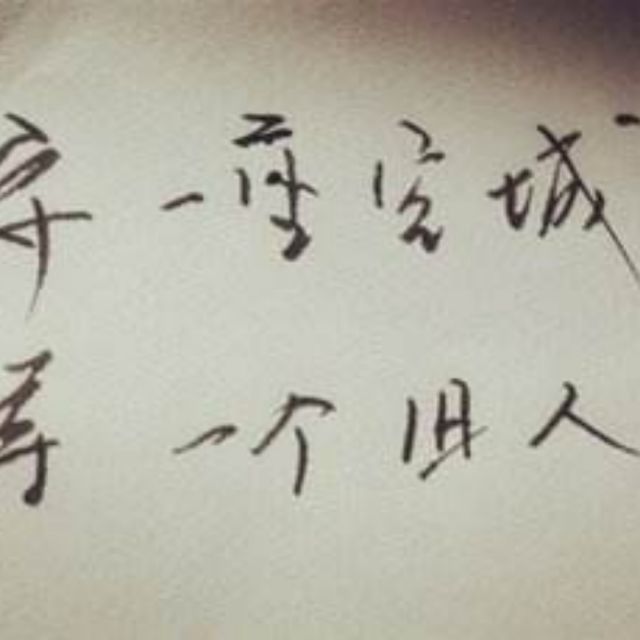 守一座宫城
寻一个旧人